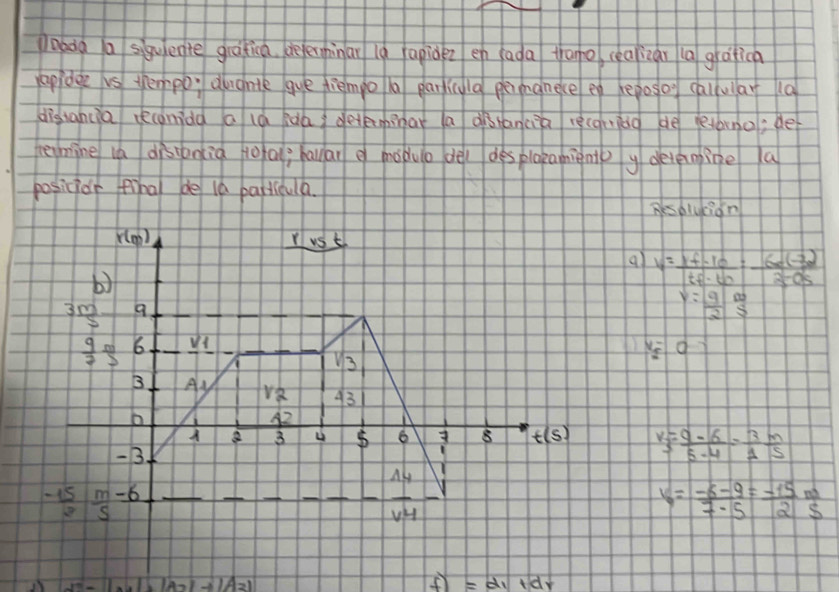 1) Dada la siguiente gráfica determinar la rapidez en cada tramo, realizar la gráfica
rapidez vs tiempo; durante que tiempo la partícula permanece en reposo; calcular la
distancia recorrida a la ida; determinar la distancia recorrida de retorno; de-
termine la distancia total; hallar el módulo del desplazamiento y determine la
posición final de la partícula.
Resolución
r(m)
r vs t
a) v = rf - ro
tf - to
v = 9 m
2 s
b)
3 m
s
9
9 m
2 s
6
V1
V3
3
A1
V2
A3
0
A2
1 2 3 4 5 6 7 8 t(s)
-3
-15 m
2 s
-6
A4
V4
0
9 - 6 = 3 m
5 - 4 1 s
= -6 - 9 = -15 m
7 - 5 2 s
f) = d1 + dr